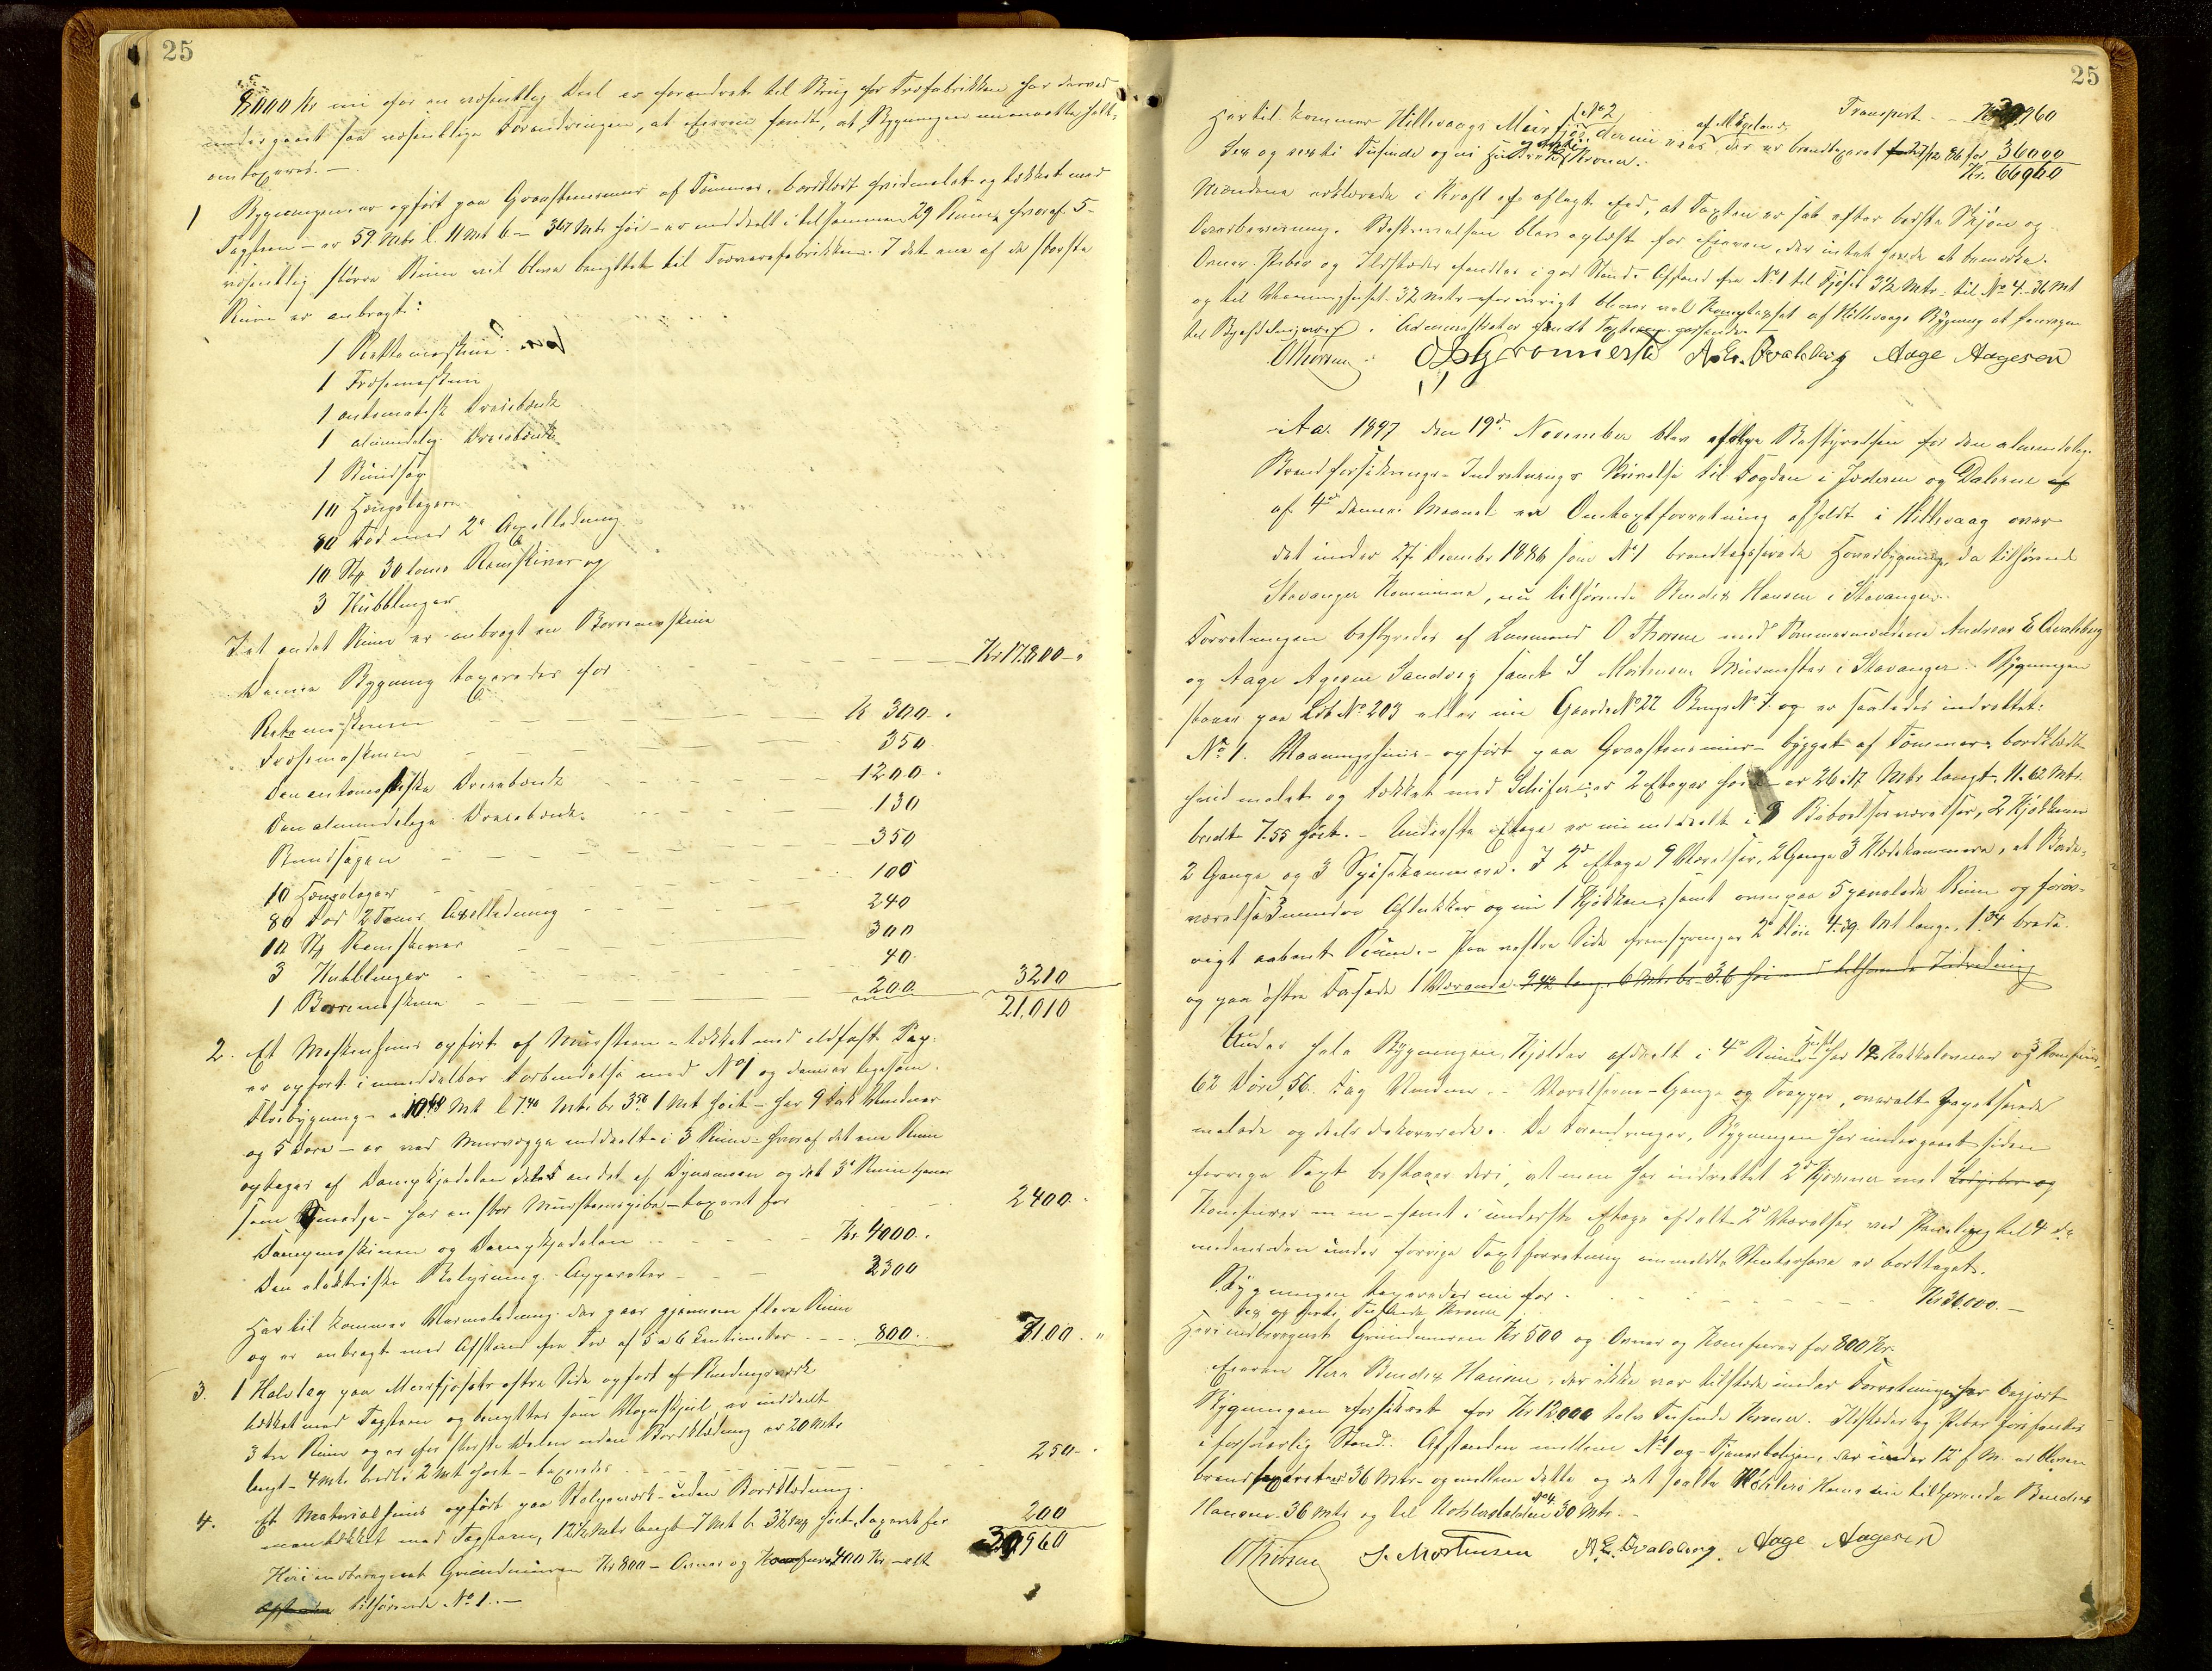 25
8000 Kr nu for en væsentlig Deel er forandret til Brug for Træfabrikken har derved
undergaaet saa væsentlige Forandringer, at Eieren fandt, at Bygningen maatte
omtaxeres. —
1 Bygningen er opført paa Graastensmuur af Tømmer, bordklædt hvidmalet og tækket med
Tagsteen — er 59 Mtr l. 11 Mt b — Mtr høi — er inddeelt i tilsammen 29 Rum, hvoraf 5
væsentlig større Rum vil blive benyttet til Trævarefabrikken. I det ene af de største
Rum er anbragt:
1 Rettemaskine
1 Fræsemaskine
1 automatisk Dreiebænk
1 almindelig Dreiebænk
1 Rundsag
10 Hængelagere
80 Fod med 2" Axelledning
10 Stk 30 toms Remskiver og
3 Kubblinger
I et andet Rum er anbragt en Borremaskine
Denne Bygning taxeredes for — Kr 17.800 —
Rettemaskinen — Kr 300
Fræsemaskinen — 350
Den automatiske Dreiebænk — 1200
Den almindelige Dreiebænk — 130
Rundsagen — 350
10 Hængelager — 100
80 Fod 2 Toms Axelledning — 240
10 Stk Remskiver — 300
3 Kubblinger — 40
1 Borremaskine — 200 3210
21,010
2. Et Maskinhuus opført af Muursteen — tækket med ildfast Tag
er opført i umiddelbar Forbindelse med No 1 og danner ligesom
Fløibygning — 10 Mt l 7.40 Mtr br 3.50 Mt høit — har 9 Fag Vinduer
og 5 Døre — er ved Murvægge inddeelt i 3 Rum — hvoraf det ene Rum
optages af Dampkjedelen det andet af Dynamoen og det 3' Rum tjener
som Smedje — har en stor Murstenspibe — taxeret for — 2400
Dampmaskinen og Dampkjedelen — Kr 4000
Den elektriske Belysning-Apparater — 2300
Hertil kommer Varmeledning der gaar gjennem flere Rum
og er anbragt med Afstand fra Træ af 5 a 6 Centimeter — 800 7100
3. 1 Halvtag paa Meierfjøsets østre Side opført af Bindingsværk
tækket med Tagsteen og benyttes som Vognskjul er inddeelt
3 tre Rum og er for største Delen uden Bordklædning er 20 Mtr
langt — 4 Mtr bredt 2 Mt høit — taxeredes — 250
4. Et Materialhuus opført paa Stolpeværk — uden Bordklædning
men tækket med Tagsteen, 12½ Mtr langt 7 Mt b. høit, taxeret for 200
30,960
Heri indberegnet Grundmuren Kr 800 — Ovner og Komfurer 400 Kr — alt
tilhørende No 1. —
25
Transport — Kr 30,960
Hertil kommer Hillevaags Meierfjøs No 2 der nu eies af M. Egeland, der er brandtaxeret 27/12 86 for 36000
Kr. 66960
Sex og sexti Tusinde og ni Hundrede og sexti Kroner.
Mændene erklærede i Kraft af aflagt Eed, at Taxten er sat efter bedste Skjøn og
Overbeviisning. Beskrivelsen blev oplæst for Eieren, der intet havde at bemærke.
Ovner, Piber og Ildsteder fandtes i god Stand. Afstand fra No 1 til Fjøset 3½ Mtr — til No 4. 36 Mt
og til Vaaningshuset 32 Mtr — forøvrigt bliver ved Komptaxst af Hillevaags Bygning at
til
OThorsen O. Gronnestad A. E. Qvaleberg Aage Aagesen
Aar 1897 den 19d November blev efter Bestyrelsen for den almindelige
Brandforsikrings-Indretnings Skrivelse til Fogden i Jæderen og Dalerne
af 4de dennes Maaned en Omtaxtforretning afholdt i Hillevaag over
det under 27 Decembr 1886 som No 1 brandtaxerede Hovedbygning, da tilhørende
Stavanger Kommune, nu tilhørende Bendix Hansen i Stavanger.
Forretningen bestyredes af Lensmand O Thorsen med Tømmermændene Andreas E Qvaleberg
og Aage Agesen Sandvig samt S Mortensen Murmester i Stavanger. Bygningen
staaer paa Lb No 203 eller nu Gaards No 22 Brugs No 7 og er saaledes indrettet:
No 1. Vaaningshuus — opført paa Graastensmuur — bygget af Tømmer, bordklædt
hvidmalet og tækket med Schifer — er 2 Etager — er 26.17 Mtr langt, 11.62 Mtr
bredt 7.55 høit. — Underste Etage er nu inddeelt i 9 Beboelsesværelser, 2 Kjøkkener
2 Gange og 3 Spisekammere. I 2d Etage 9 Værelser, 2 Gange 3 Klædekammere, et Bade-
værelse 3 mindre Aflukker og nu 1 Kjøkken, samt ovenpaa 5 panelede Rum og forøv-
rigt aabent Rum. — Paa vestre Side fremspringer 2 Fløie 4.39 Mt lange, 1.34 brede
og paa østre Façade 1 Veranda 9.42 lang 6 Mtr br 3.6 høi med tilhørende Indredning
Under hele Bygningen Kjelder afdeelt i 4 Rum — Huset har 12 Kakkelovner og 3 Komfurer,
62 Døre, 56 Fag Vinduer. — Værelserne — Gange og Trapper, overalt Tapetserede
malede og deels dekorerede. De Forandringer, Bygningen har undergaaet siden
forrige Taxt bestaaer deri, at man har indrettet 2 Kjøkkener med
Komfurer — samt i underste Etage afdelt 2 Værelser ved Paneling til 4
medens den under forrige Taxtforretning anmeldte Vinterhave er borttaget.
Bygningen taxeredes nu for — Kr 36000. —
Sex og tretti Tusinde Kroner
Heri indberegnet Grundmuren Kr 500 og Ovner og Komfurer for 800 Kr.
Eieren Herr Bendix Hansen, der ikke var tilstede under Forretningen har begjært
Bygningen forsikret for Kr 12000 tolv Tusinde Kroner. Ildsteder og Piber forefandtes
i forsvarlig Stand. Afstanden mellem No 1 og Tjenerboligen, der under 12' f M. er bleven
brandtaxeret er 36 Mtr — og mellem dette og det saakaldte Huus nu tilhørende Bendix
Hansen 36 Mtr og til No 4. 30 Mtr. —
OThorsen S. Mortensen A. E. Qvaleberg. Aage Aagesen